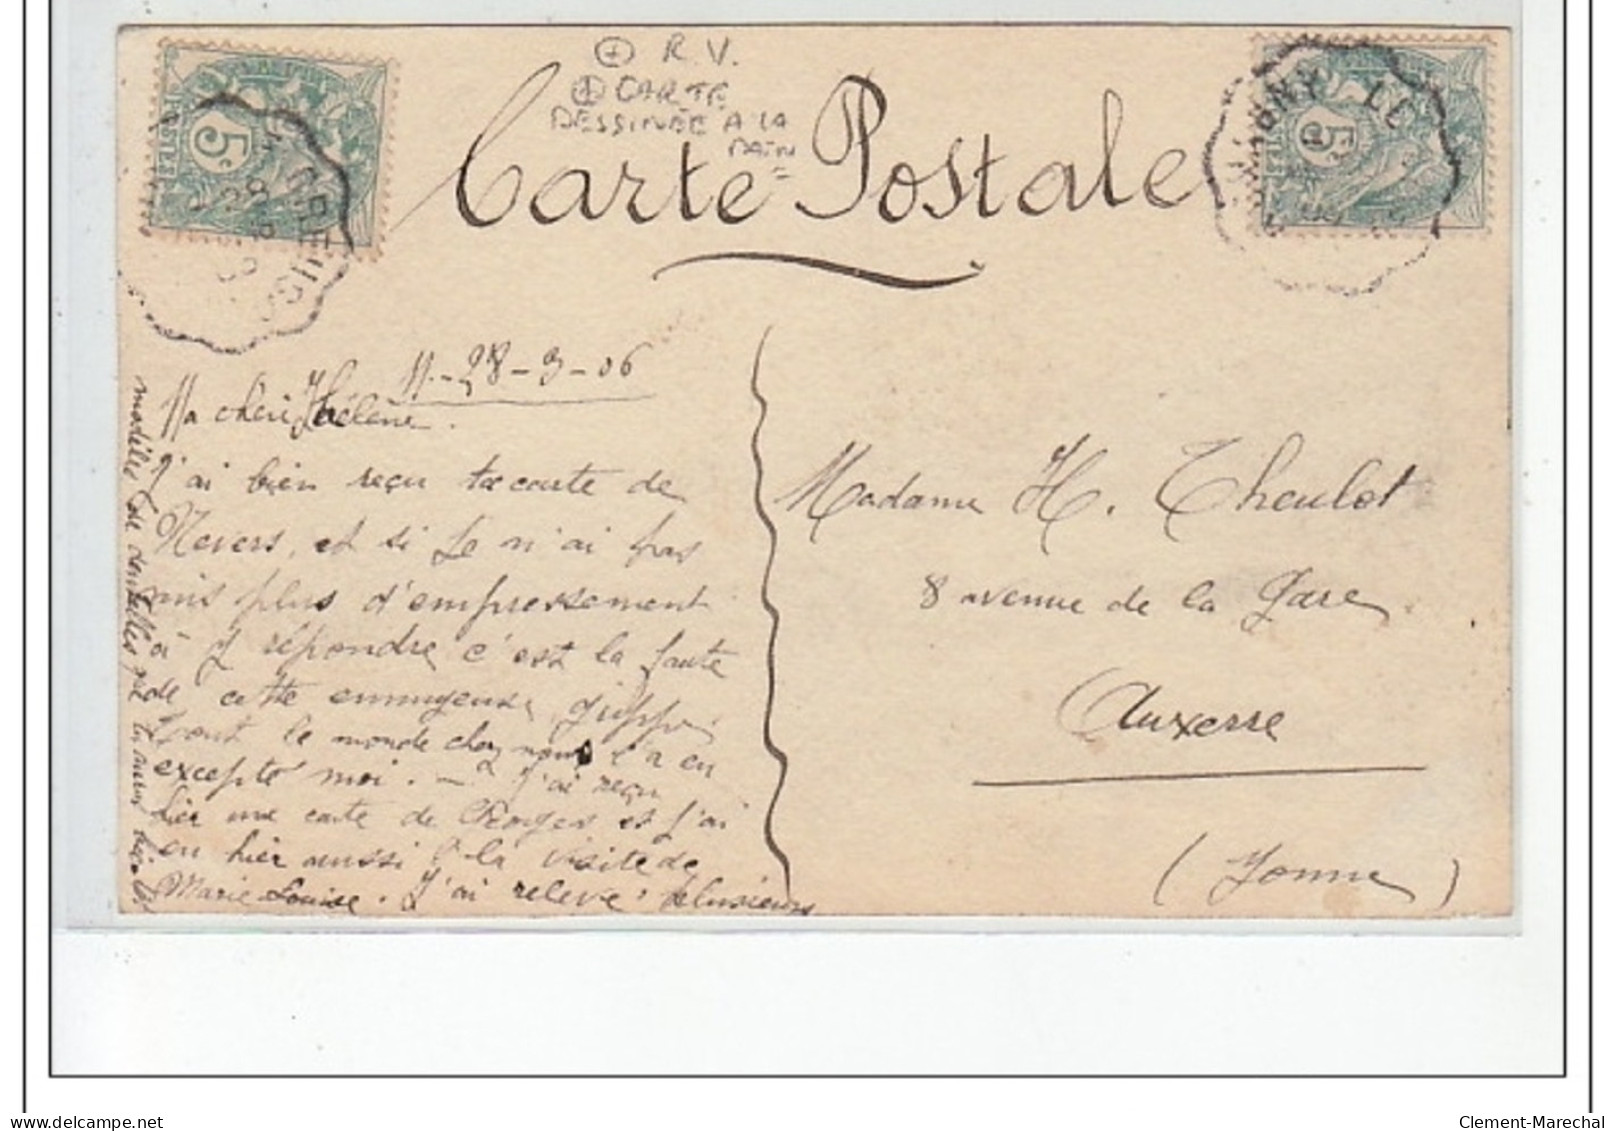 + R.V.
+ CARTE
DESSINÉE A LA
MAIN
Carte Postale
5c
POSTES
5
CHAGNY LE
CREUSO
28
11.-28-3-06
Ma chère Hélène.
J'ai bien reçu ta carte de
Nevers, et si je n'ai pas
mis plus d'empressement
à y répondre c'est la faute
de cette ennuyeuse grippe
tout le monde chez nous l'a eu
excepté moi. — J'ai reçu
hier une carte de et j'ai
eu hier aussi la visite de
Marie Louise. J'ai relevé plusieurs
modèles de dentelles
Madame H. Theulot
8 avenue de la Gare
Auxerre
(Yonne)
delcampe.net
Clement-Marechal